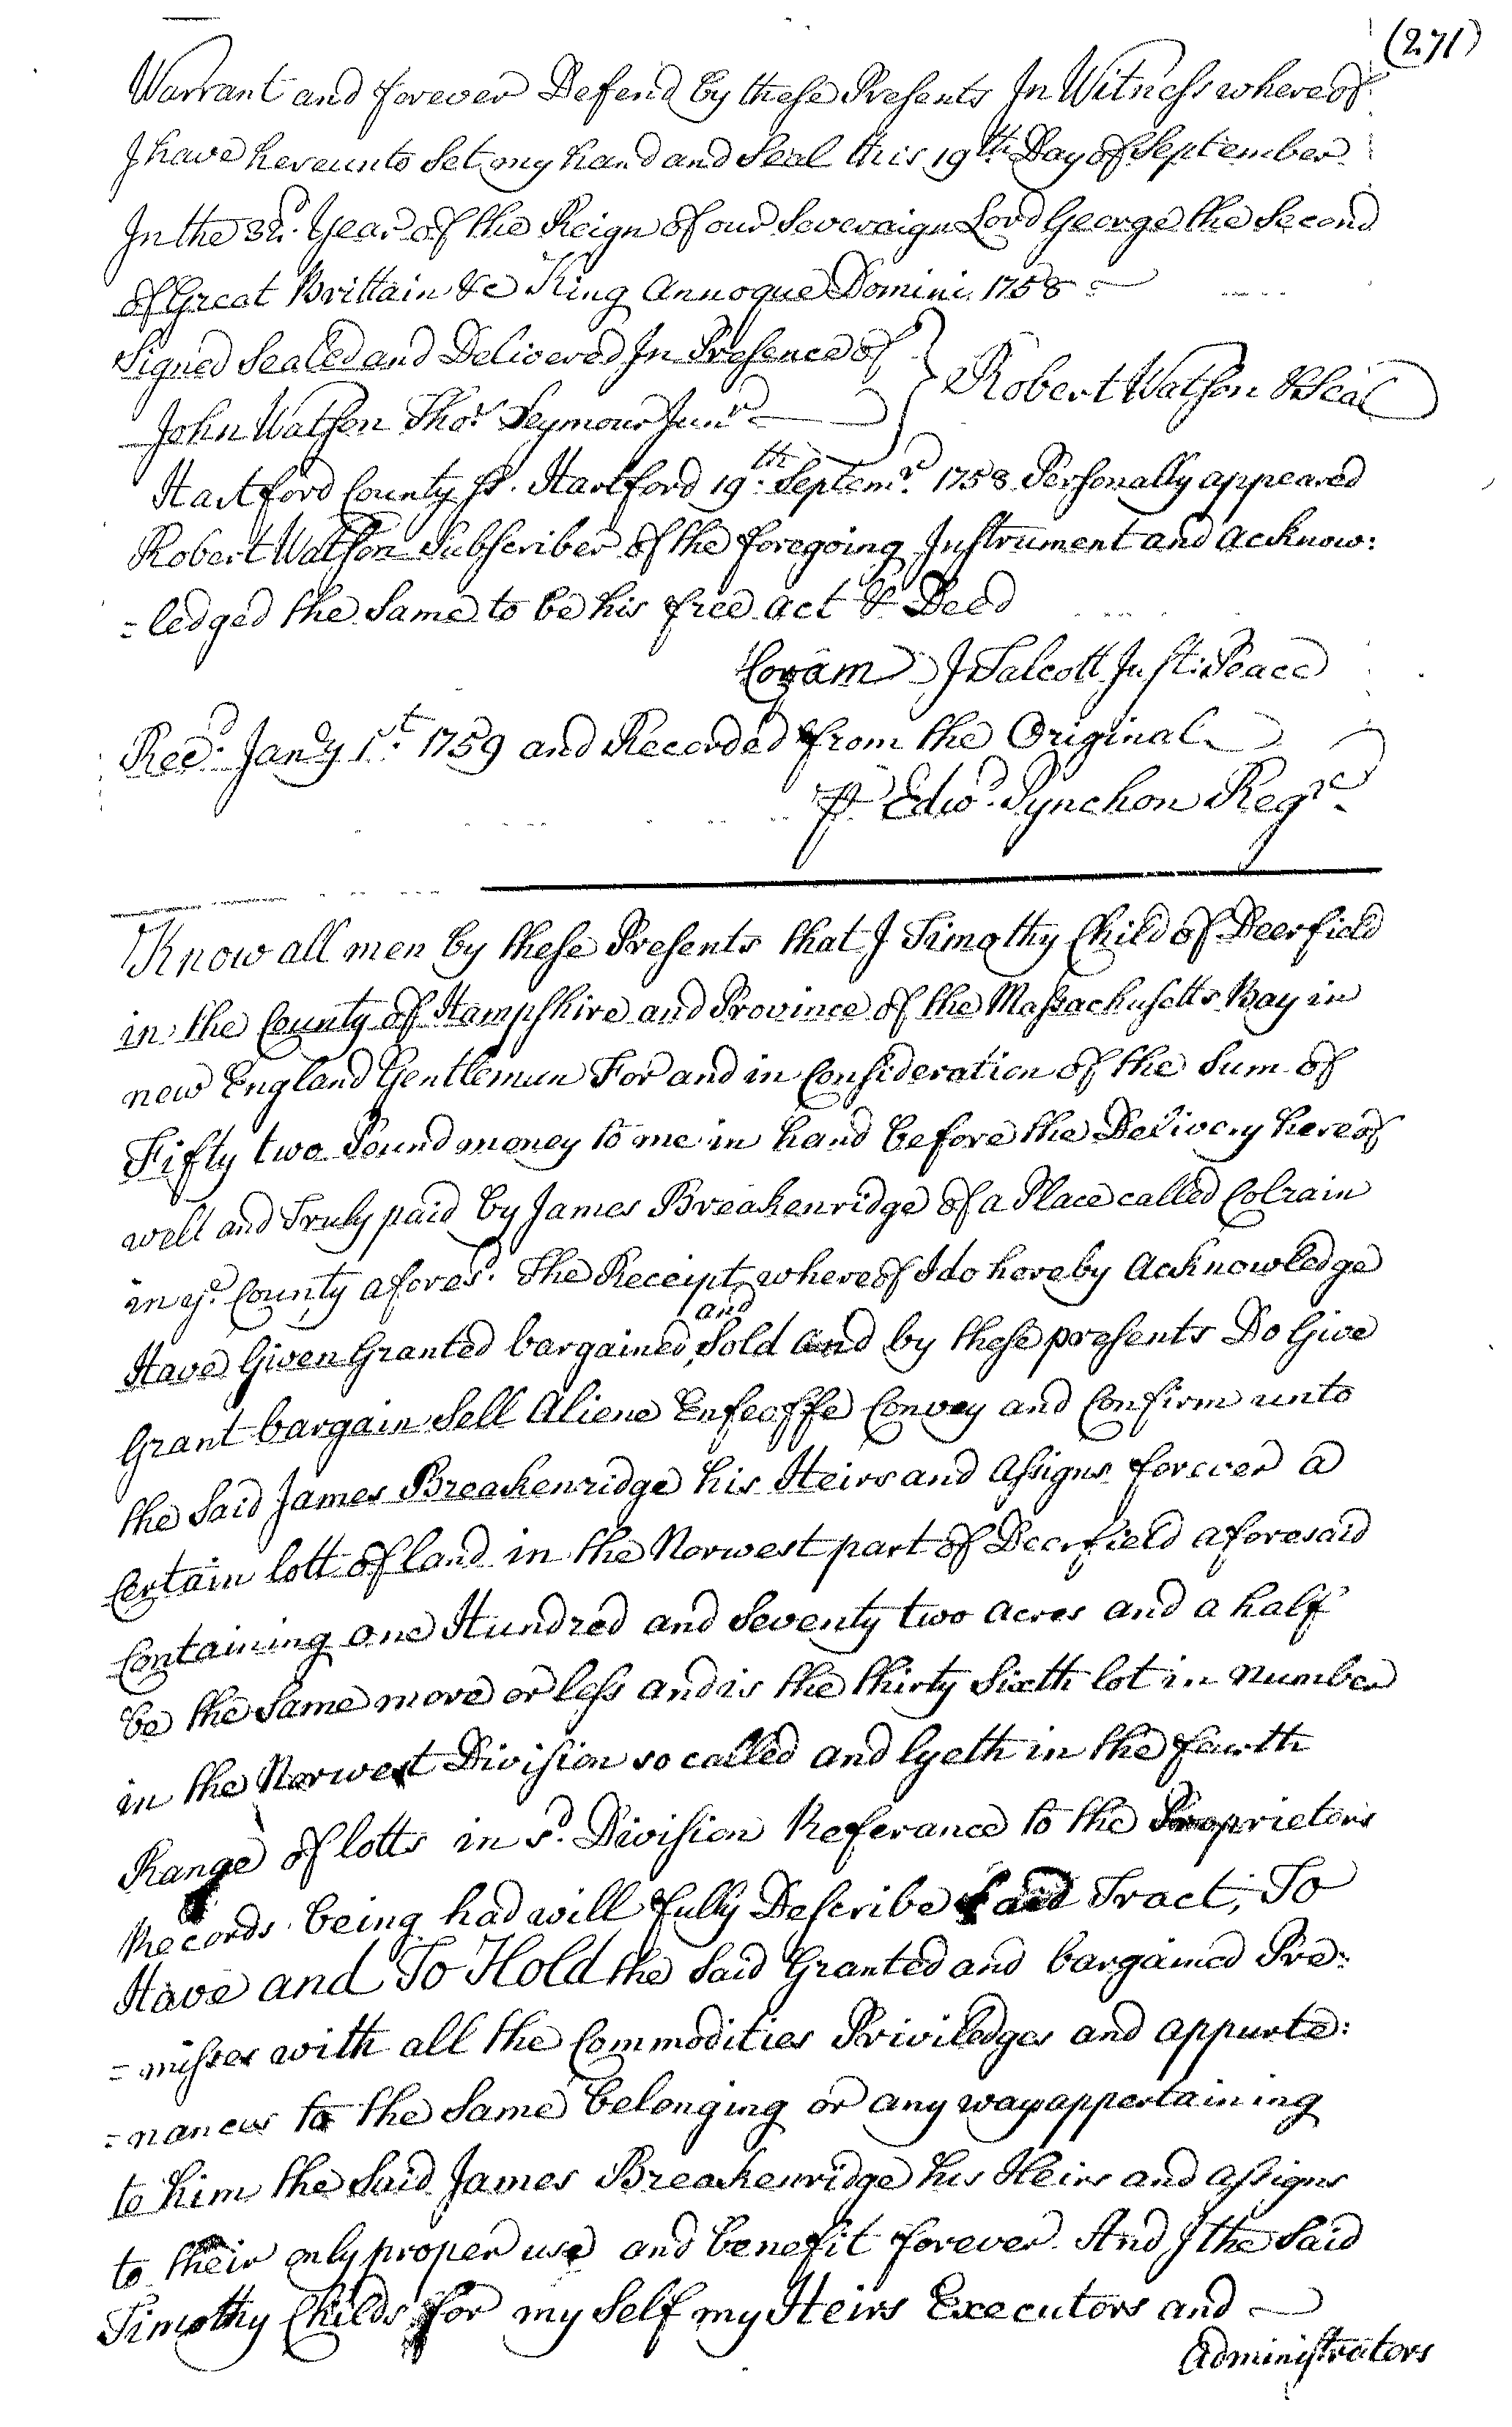 (271)
Warrant and forever Defend by these Presents In Witness whereof
I have hereunto Set my hand and Seal this 19th. Day of September
In the 32d. Year of the Reign of our Soveraign Lord George the Second
of Great Brittain &c King Annoque Domini 1758
Signed Sealed and Delivered In Presence of
John Watson Thos. Seymour Junr
Robert Watson & Seal
Hartford County ss. Hartford 19th. Septemr. 1758 Personally appeared
Robert Watson Subscriber of the foregoing Instrument and acknow:
=ledged the Same to be his free act & Deed
Coram J Talcott Just: Peace
Recd. Jany 1st. 1759 and Recorded from the Original
P Edwd. Pynchon Regr.
Know all men by these Presents that I Timothy Child of Deerfield
in the County of Hampshire and Province of the Massachusetts Bay in
new England Gentleman For and in Consideration of the Sum of
Fifty two Pound money to me in hand before the Delivery hereof
well and Truly paid by James Breakenridge of a Place called Colrain
in ye. County aforesd. The Receipt whereof I do hereby Acknowledge
Have Given Granted bargained, and Sold and by these presents Do Give
Grant bargain Sell Aliene Enfeoffe Convey and Confirm unto
the Said James Breakenridge his Heirs and Assigns forever a
Certain lott of land in the Norwest part of Deerfield aforesaid
Containing one Hundred and Seventy two acres and a half
be the Same more or less and is the thirty Sixth lot in number
in the Norwest Division so called and lyeth in the fourth
Range of lotts in sd. Division Referance to the Proprietors
Records being had will fully Describe Said Tract, To
Have and To Hold the Said Granted and bargained Pre:
=misses with all the Commodities Priviledges and appurte:
=nances to the Same belonging or any ways appertaining
to him the Said James Breakenridge his Heirs and assigns
to their only proper use and benefit forever. And I the Said
Timothy Childs for my Self my Heirs Executors and
Administrators